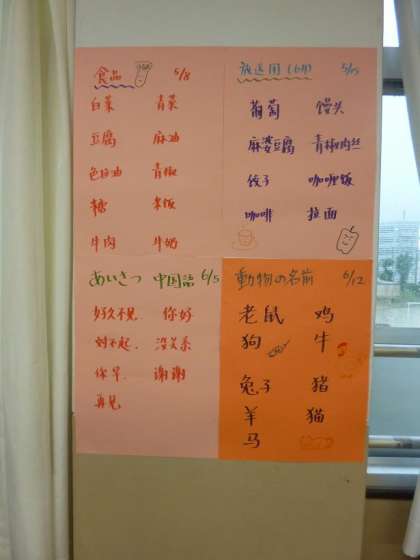 食品 5/8
白菜 青菜
豆腐 麻油
色拉油 青椒
糖 米饭
牛肉 牛奶
放送用(6月) 5/15
葡萄 馒头
麻婆豆腐 青椒肉丝
饺子 咖喱饭
咖啡 拉面
あいさつ 中国語 6/5
好久不见. 你好
对不起. 没关系
你早. 谢谢
再见
動物の名前 6/12
老鼠 鸡
狗 牛
兔子 猪
羊 猫
马